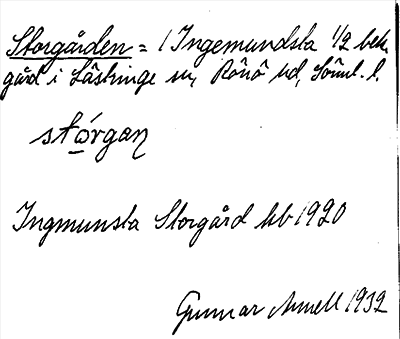 Storgården = 1 Ingemundsta 1/2 bek.
gård i Lästringe sn, Rönö hd, Söml. l.
stǫ́rgan
Ingmunsta Storgård kb 1920
Gunnar Arnell 1932